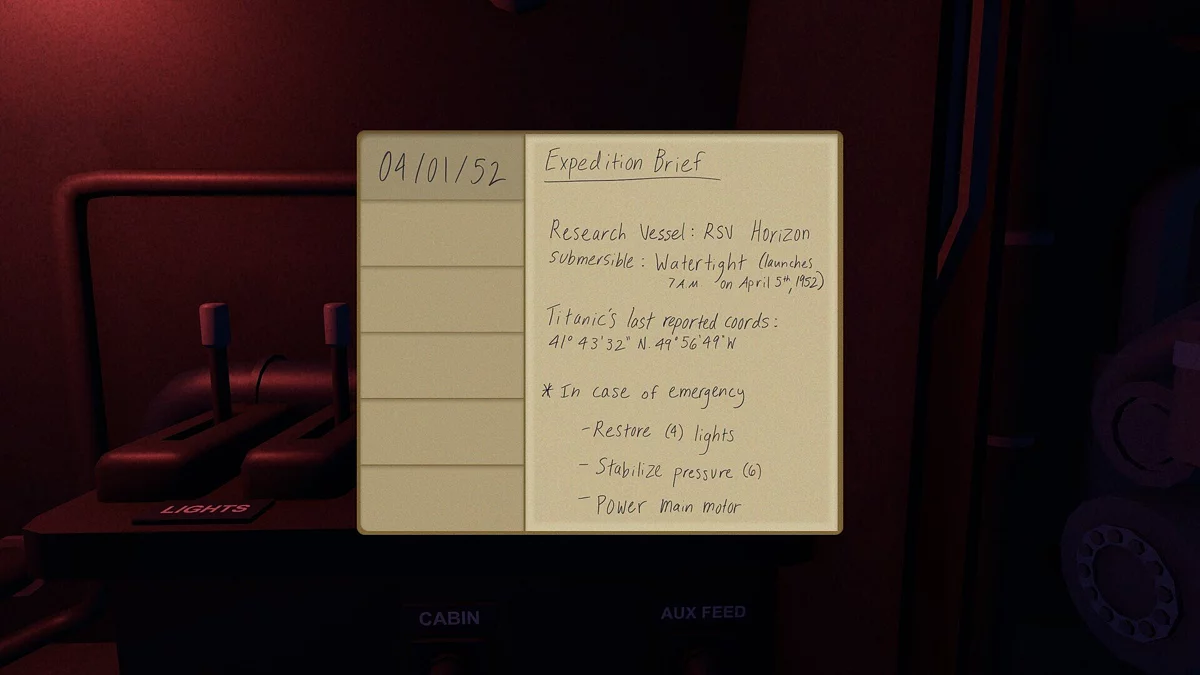 04/01/52
Expedition Brief
Research Vessel: RSV Horizon
Submersible: Watertight (launches
7AM on April 5th, 1952)
Titanic's last reported coords:
41° 43'32" N. 49°56'49"W
* In case of emergency
- Restore (4) lights
- Stabilize pressure (6)
- Power main motor
LIGHTS
CABIN
AUX FEED